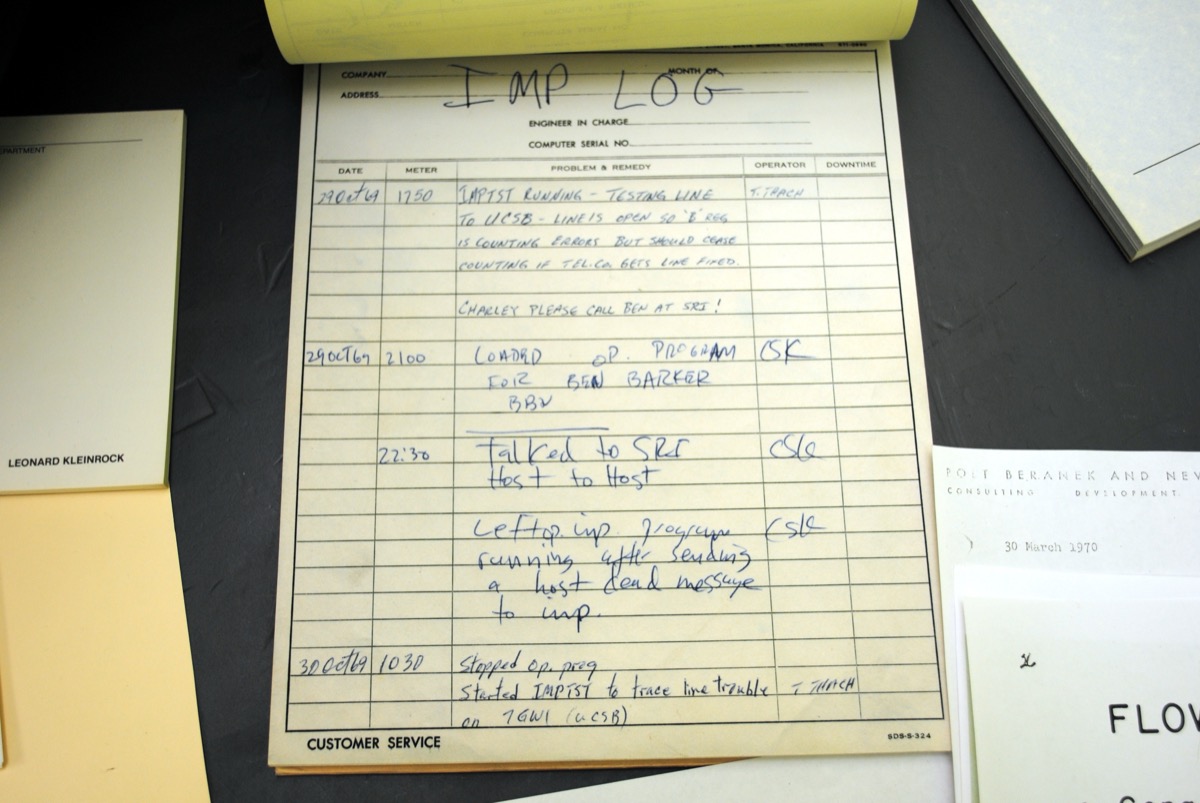 COMPANY MONTH OF
IMP LOG
ADDRESS
ENGINEER IN CHARGE
COMPUTER SERIAL NO.
DATE METER PROBLEM & REMEDY OPERATOR DOWNTIME
29Oct69 1750 IMPTST RUNNING - TESTING LINE T. THACH
TO UCSB - LINE IS OPEN SO 'B' REG
IS COUNTING ERRORS BUT SHOULD CEASE
COUNTING IF TEL.CO. GETS LINE FIXED.
CHARLEY PLEASE CALL BEN AT SRI!
29OCT69 2100 LOADED OP. PROGRAM CSK
FOR BEN BARKER
BBN
22:30 Talked to SRI CSK
Host to Host
Left op. imp. program CSK
running after sending
a host dead message
to imp.
30Oct69 1030 Stopped Op. prog
Started IMPTST to trace line trouble T THACH
on (UCSB)
CUSTOMER SERVICE SDS-S-324
LEONARD KLEINROCK
BERANEK AND NEW
CONSULTING DEVELOPMENT
30 March 1970
FLOW